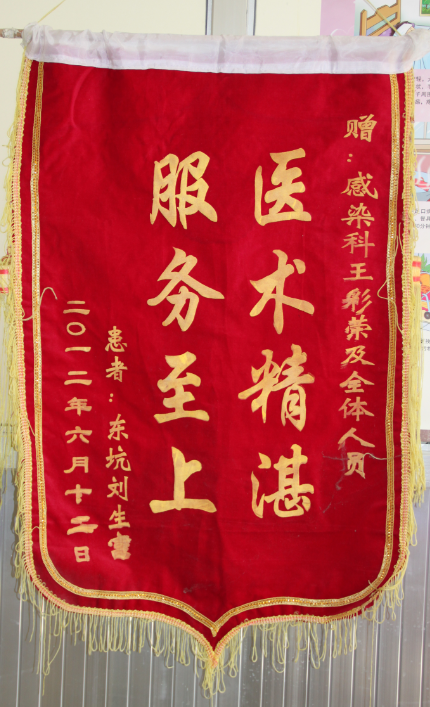 赠：感染科王彩荣及全体人员
医术精湛
服务至上
患者：东坑刘生富
二〇一二年六月十二日